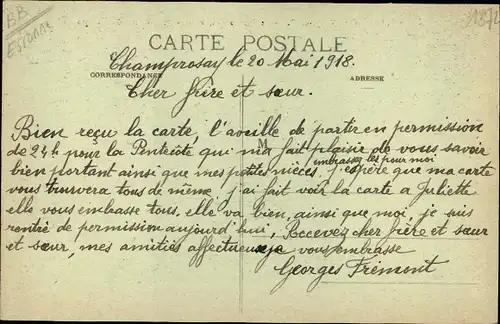 BB
Essonne
1872
CARTE POSTALE
Champrosay le 20 Mai 1918.
CORRESPONDANCE
ADRESSE
Cher frère et sœur.
M
Bien reçu la carte, l'aveille de partir en permission
de 24h pour la Pentecôte qui m'a fait plaisir de vous savoir
embrassez les pour moi
bien portant ainsi que mes petites nièces, j'espère que ma carte
vous trouvera tous de même, j'ai fait voir la carte a Juliette
elle vous embrasse tous, elle va bien, ainsi que moi, je suis
rentré de permission aujourd'hui, Recevez cher frère et sœur
et sœur, mes amitiés affectueuse je vous embrasse
Georges Frémont